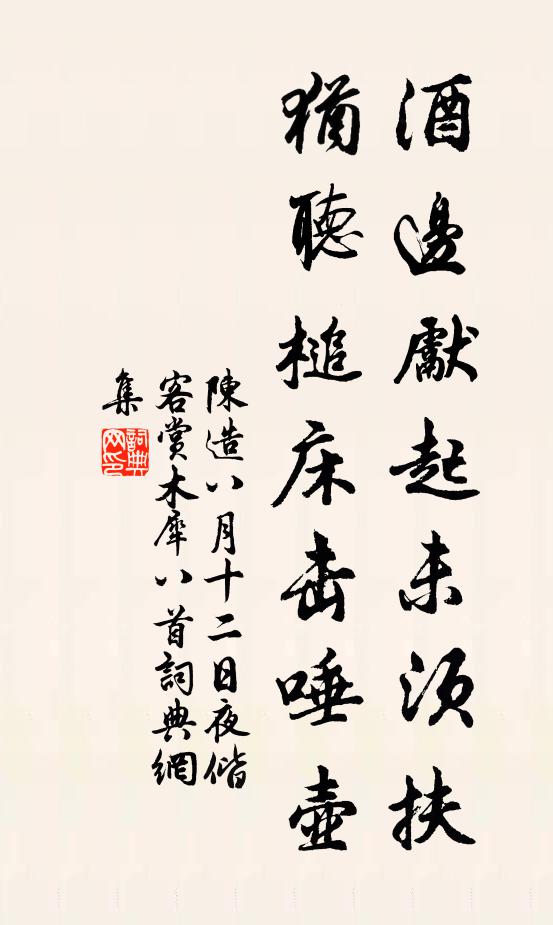 酒邊獻起未須扶
猶聽槌床击唾壺
陳造八月十二日夜偕
客賞木犀八首詞典網
集
詞典
网印